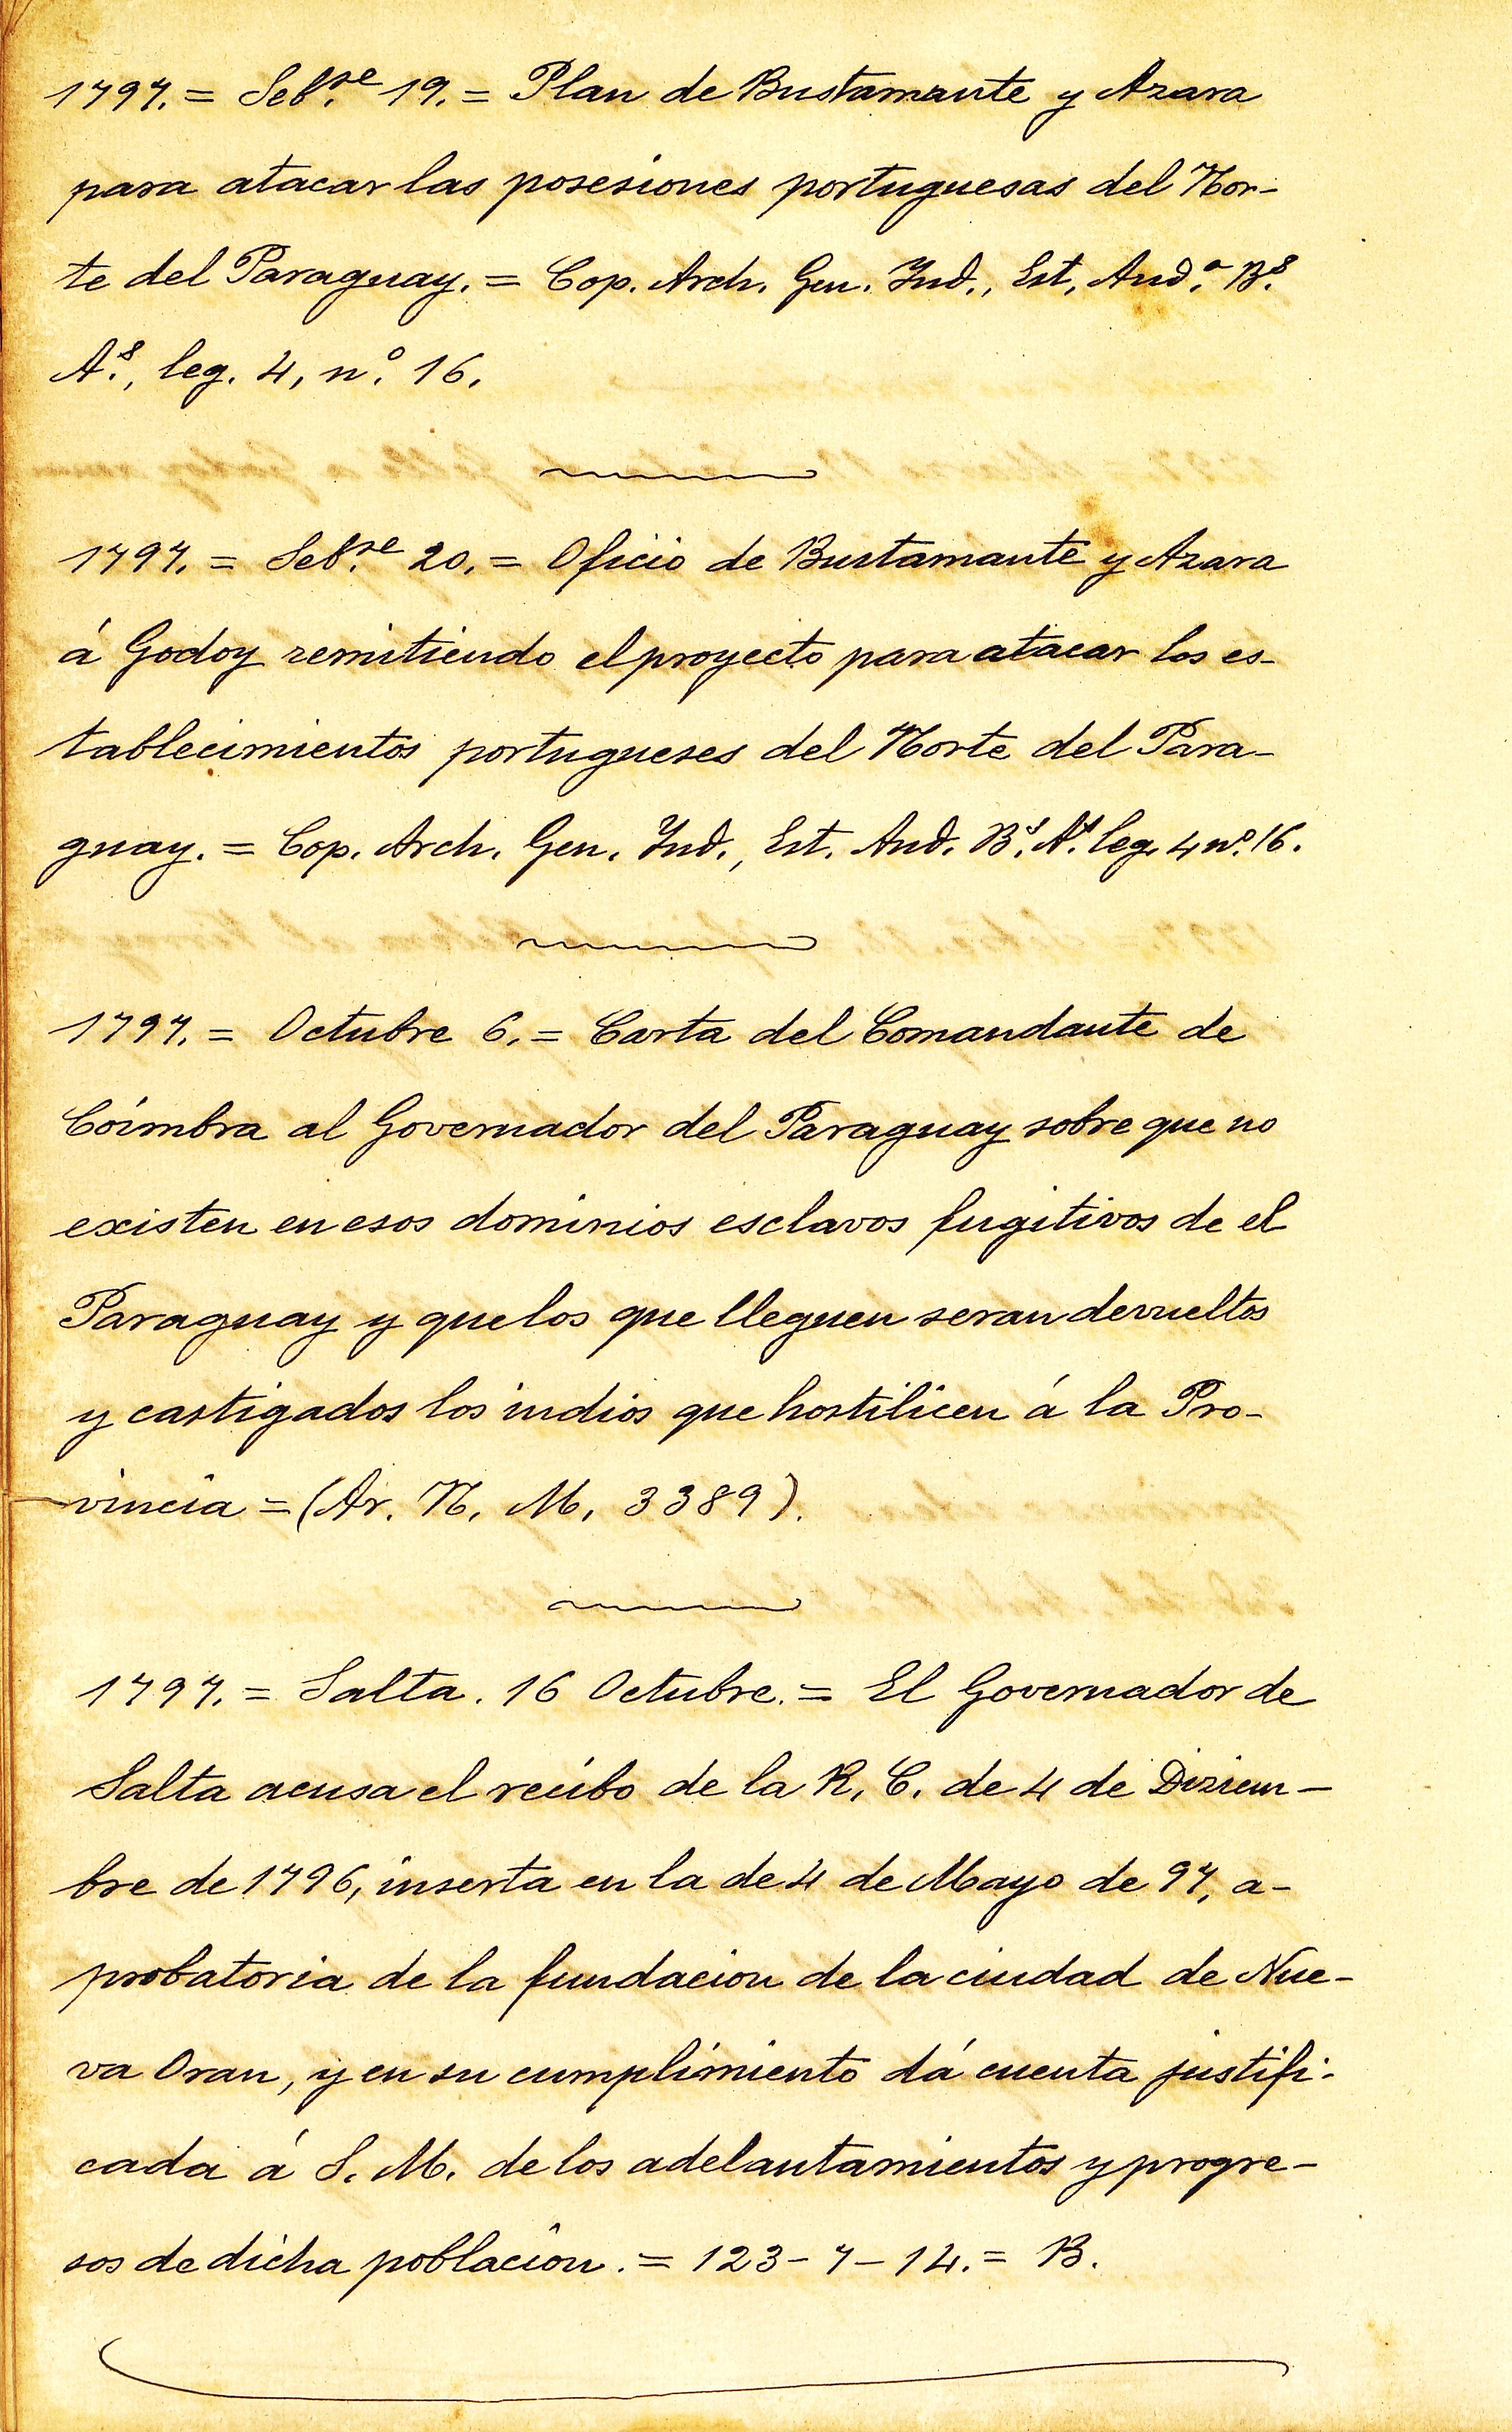 1797. = Sebre. 19. = Plan de Bustamante y Azara
para atacar las posesiones portuguesas del Nor-
te del Paraguay. = Cop. Arch. Gen. Ind., Est. Auda. Bs.
As., leg. 4, no. 16.
1797. = Sebre. 20. = Oficio de Bustamante y Azara
á Godoy remitiendo el proyecto para atacar los es-
tablecimientos portugueses del Norte del Para-
guay. = Cop. Arch. Gen. Ind., Est. Aud. Bs. As. leg. 4 no. 16.
1797. = Octubre 6. = Carta del Comandante de
Cóimbra al Governador del Paraguay sobre que no
existen en esos dominios esclavos fugitivos de el
Paraguay y que los que lleguen seran devueltos
y castigados los indios que hostilicen á la Pro-
vincia = (Ar. N. M. 3389).
1797. = Salta. 16 Octubre. = El Governador de
Salta acusa el recibo de la R. C. de 4 de Diziem-
bre de 1796, inserta en la de 4 de Mayo de 97, a-
probatoria de la fundacion de la ciudad de Nue-
va Oran, y en su cumplimiento dá cuenta justifi-
cada á S. M. de los adelantamientos y progre-
sos de dicha poblacion. = 123-7-14. = B.